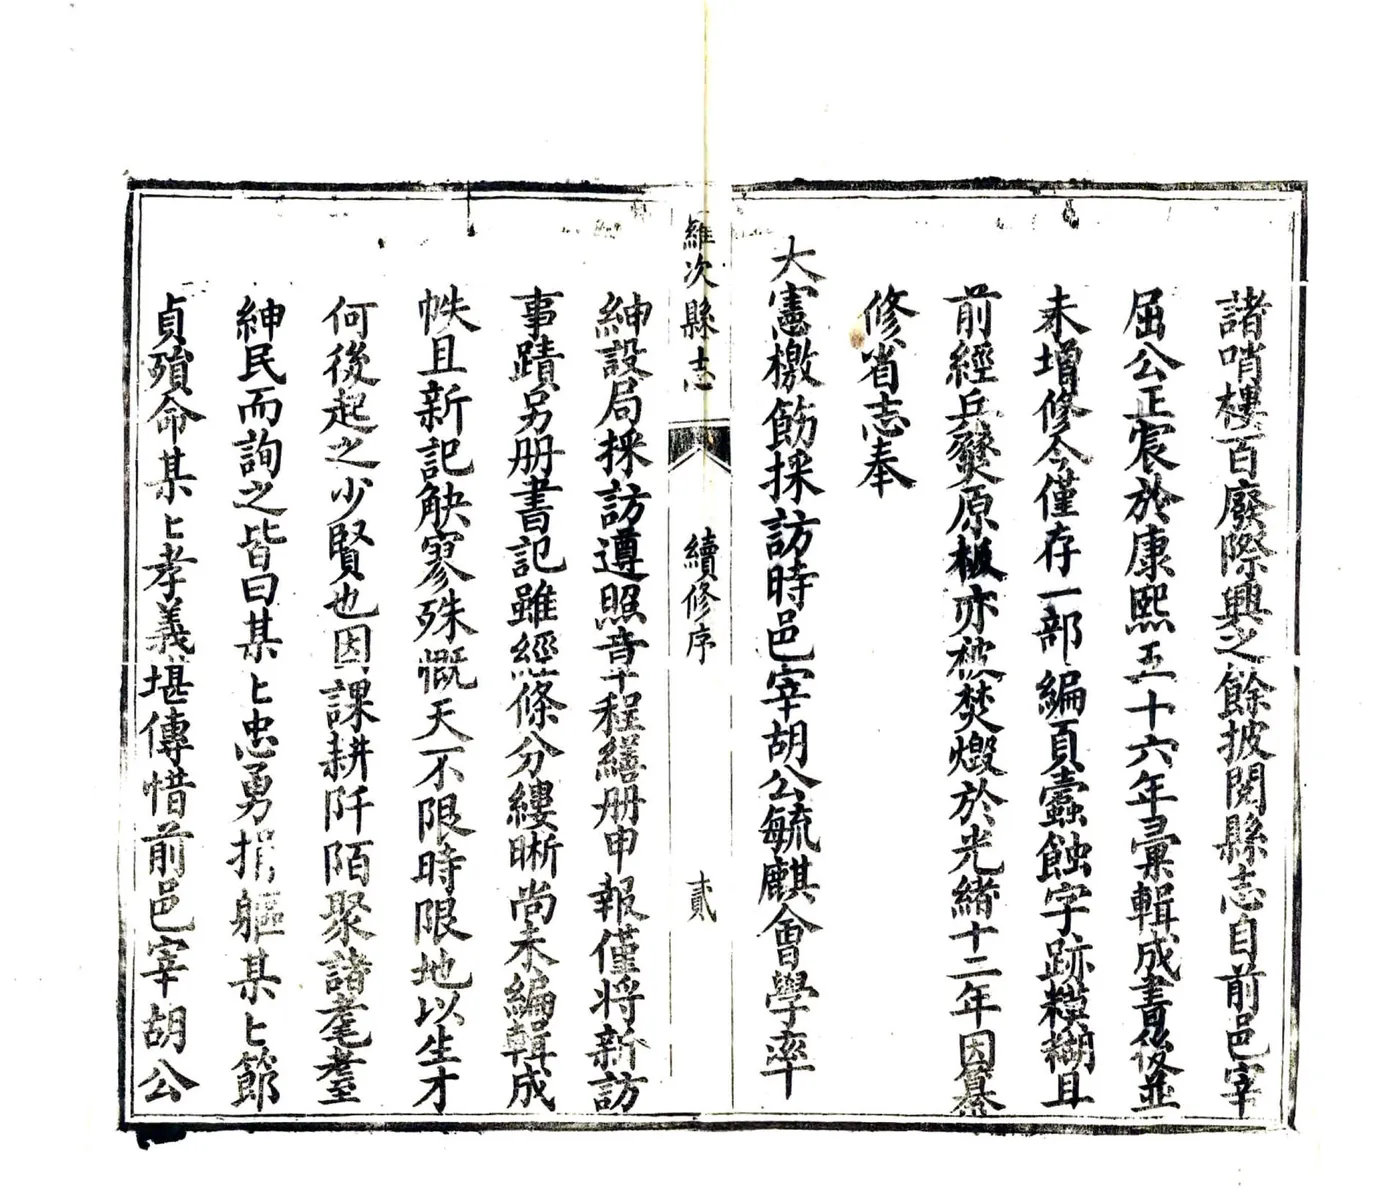 諸哨樓百廢際興之餘披閱縣志自前邑宰
屈公正宸於康熙五十六年彙輯成書後並
未增修今僅存一部編頁蠹蝕字跡糢糊且
前經兵燹原板亦被焚燬於光緒十二年因纂
修省志奉
大憲檄飭採訪時邑宰胡公毓麒會學率
羅次縣志
續修序
貳
紳設局採訪遵照章程繕册申報僅將新訪
事蹟另册書記雖經條分縷晰尚未編輯成
帙且新記觖寥殊慨天不限時限地以生才
何後起之少賢也因課耕阡陌聚諸耄耋
紳民而詢之皆曰某〻忠勇捐軀某〻節
貞殞命某〻孝義堪傳惜前邑宰胡公